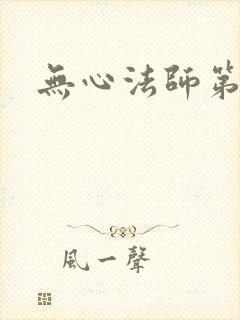 無心法師第
風一聲